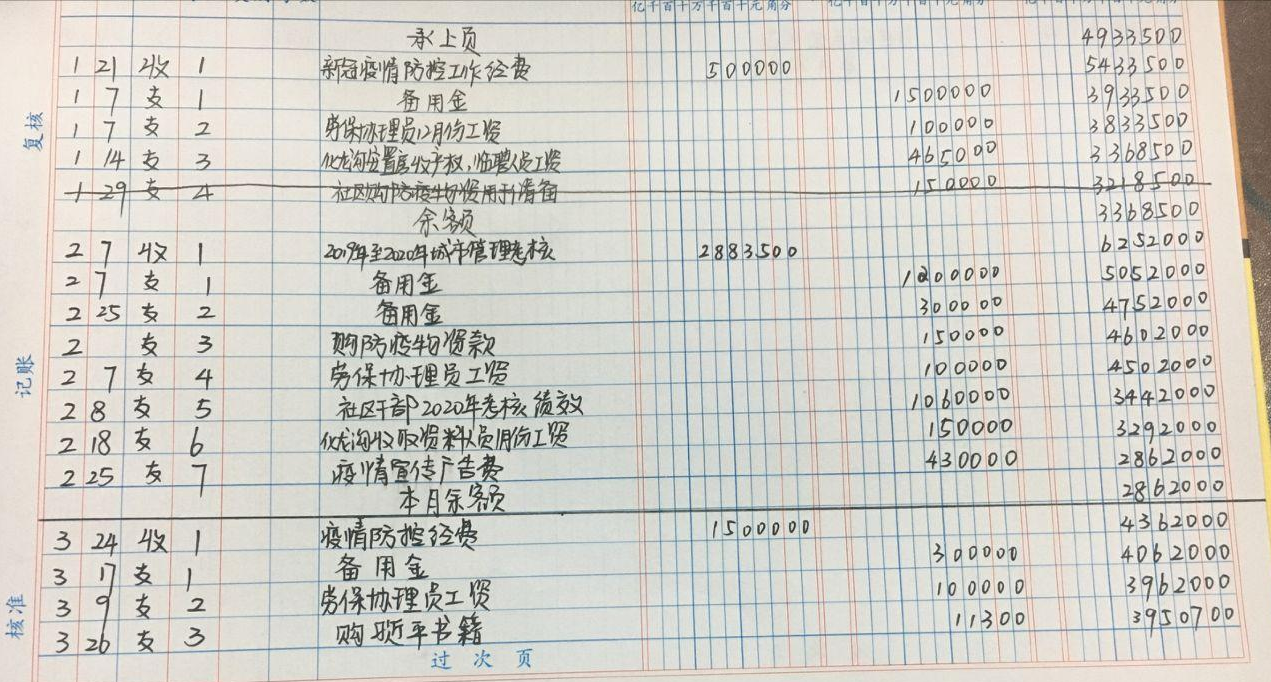 亿千百十万千百十元角分 亿千百十万千百十元角分 亿千百十万千百十元角分
承上页 4933500
1 21 收 1 新冠疫情防控工作经费 500000 5433500
1 7 支 1 备用金 1500000 3933500
复核
1 7 支 2 劳保协理员12月份工资 100000 3833500
1 14 支 3 化龙沟安置房收产权,临聘人员工资 465000 3368500
1 29 支 4 社区购防疫物资费用于1清备 150000 3218500
余额 3368500
2 7 收 1 2019年至2020年城市管理考核 2883500 6252000
2 7 支 1 备用金 1200000 5052000
2 25 支 2 备用金 300000 4752000
2 支 3 购防疫物资款 150000 4602000
记账
2 7 支 4 劳保协理员工资 100000 4502000
2 8 支 5 社区干部2020年考核绩效 1060000 3442000
2 18 支 6 化龙沟收取资料人员1月份工资 150000 3292000
2 25 支 7 疫情宣传广告费 430000 2862000
本月余额 2862000
3 24 收 1 疫情防控经费 1500000 4362000
3 17 支 1 备用金 300000 4062000
核准
3 9 支 2 劳保协理员工资 100000 3962000
3 26 支 3 购习近平书籍 11300 3950700
过次页